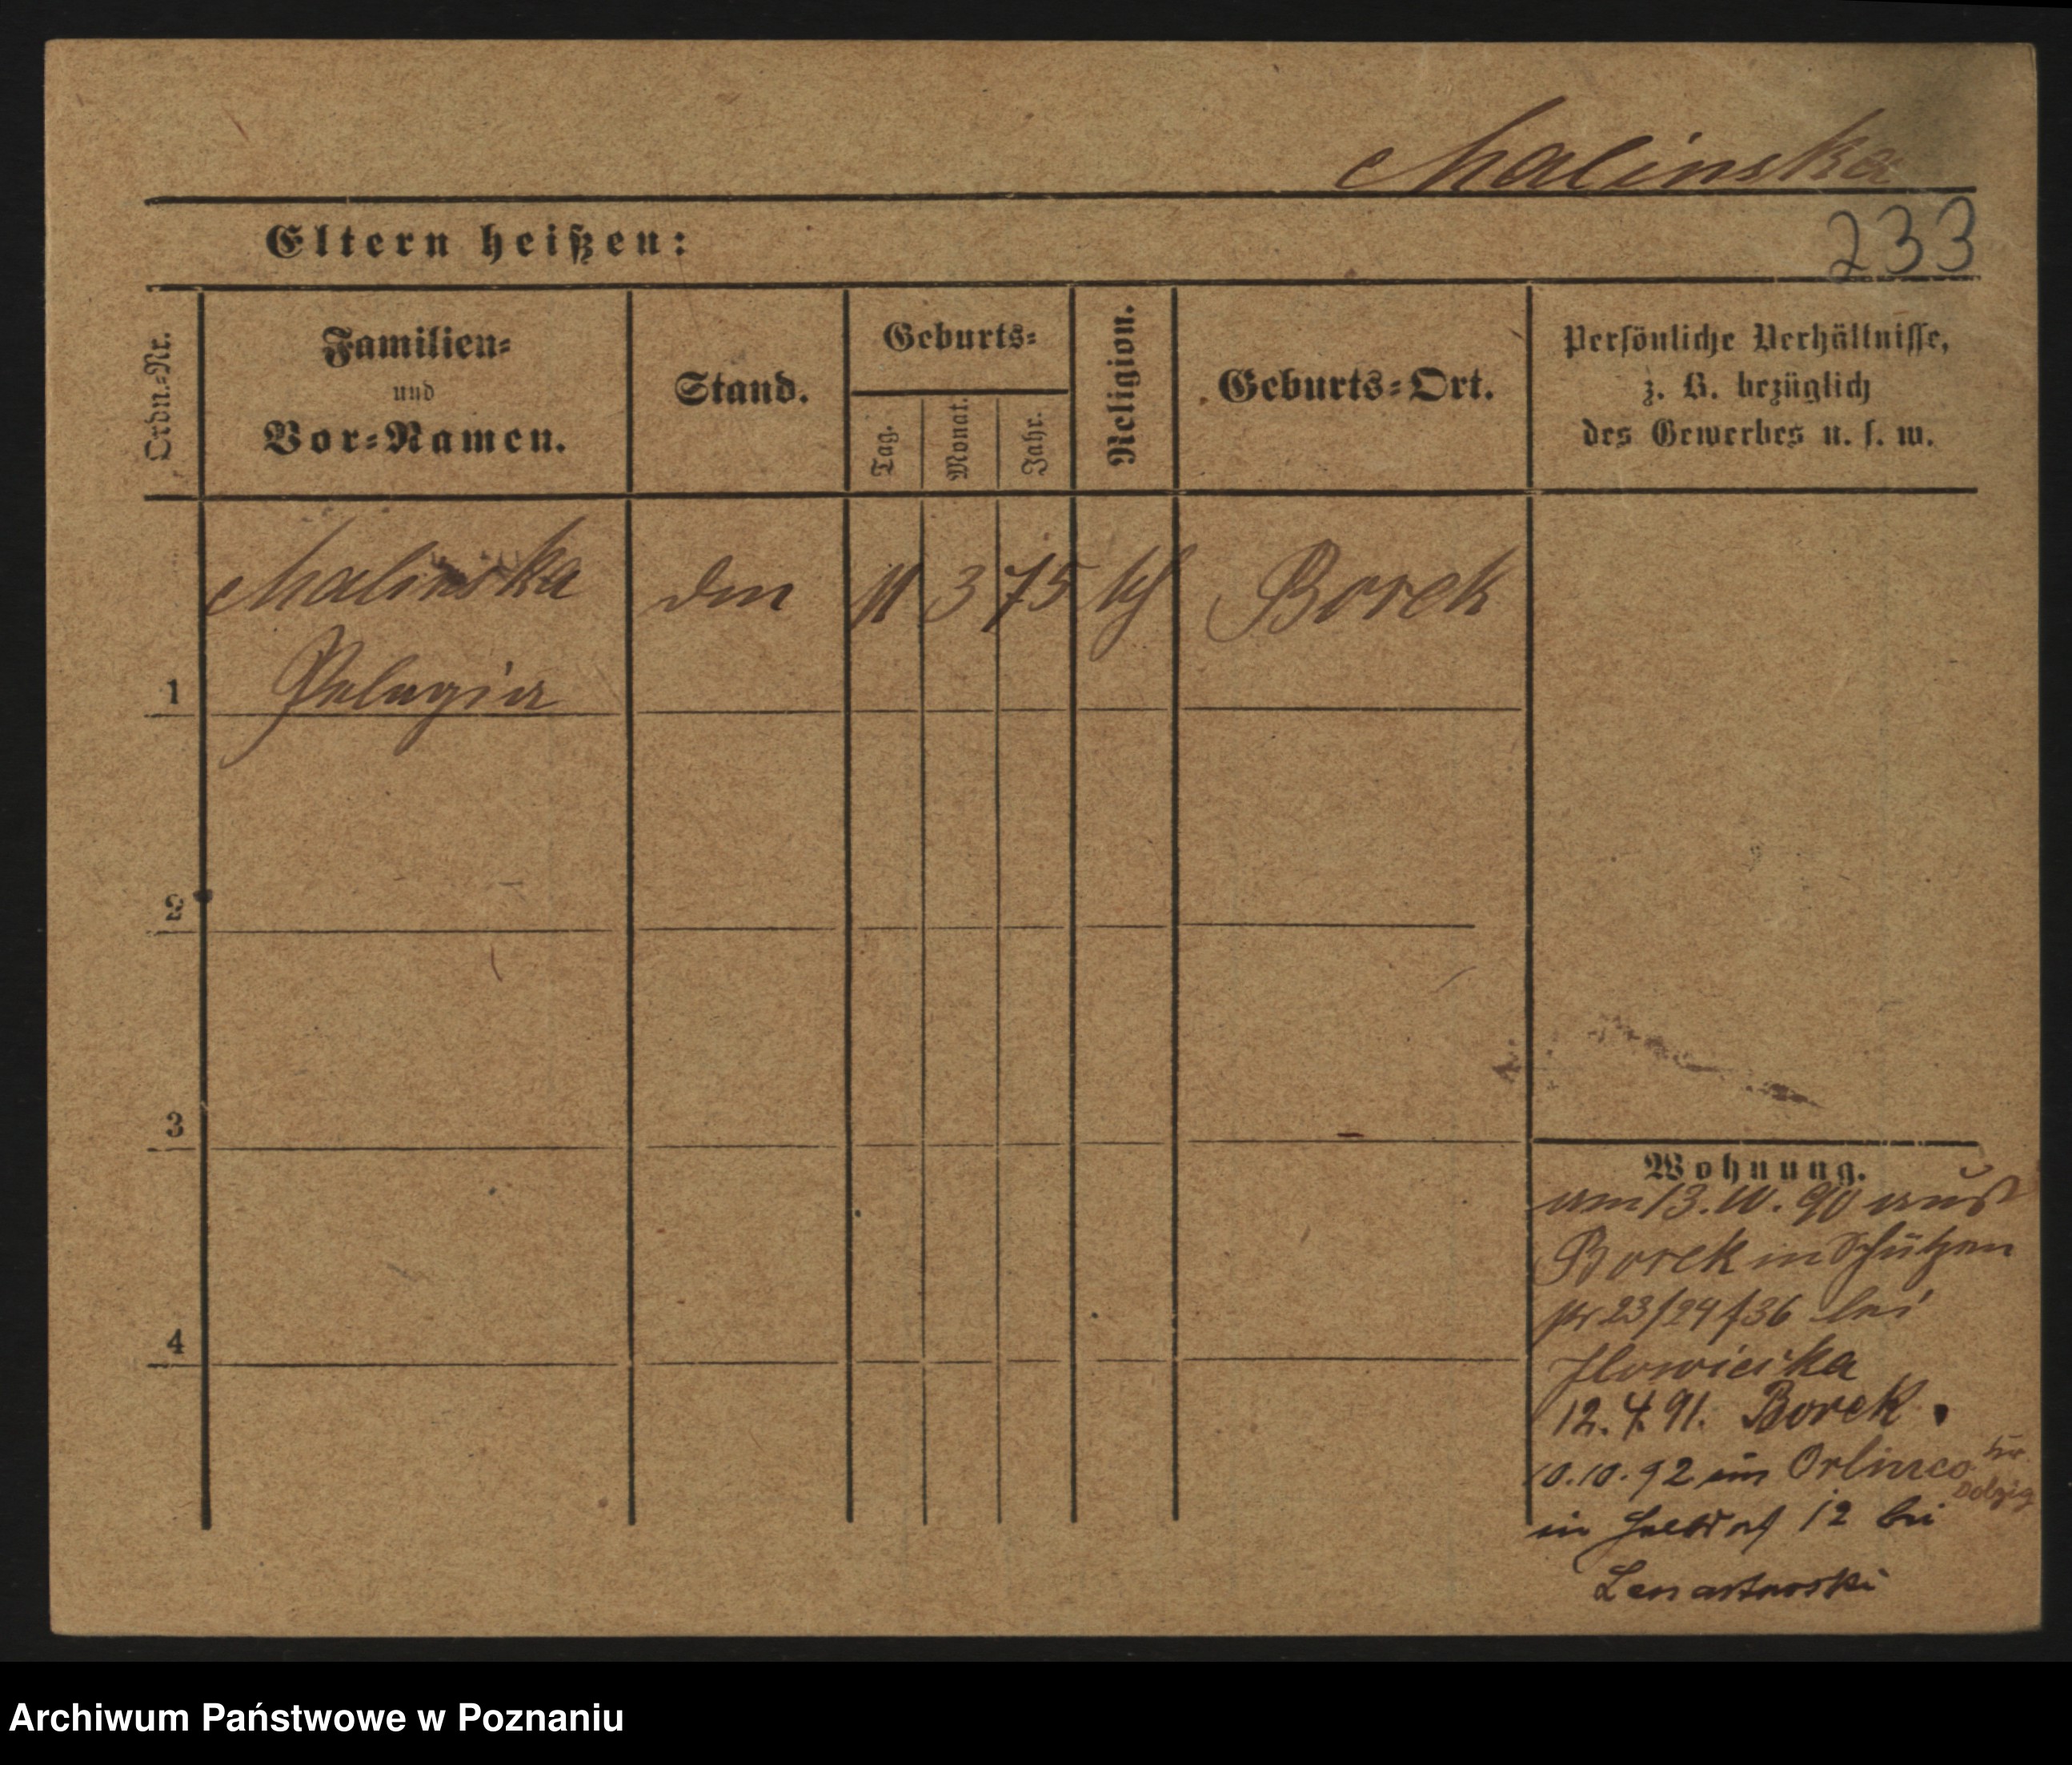 Malinska
233
Eltern heißen:
Ordn.=Nr.
Familien=
und
Vor=Namen.
Stand.
Geburts=
Tag.
Monat.
Jahr.
Religion.
Geburts=Ort.
Persönliche Verhältnisse,
z. B. bezüglich
des Gewerbes u. s. w.
Malinska 11 3 75 Borek
Pelagia
1
2
3
4
Wohnung.
am 13. 10. 90 aus
Borek in Schützen
str 23/24 f 36 bei
12. 4. 91. Borek.
10.10.92 Orlinco
Dolzig
in 12 bei
Lenartowski
Archiwum Państwowe w Poznaniu